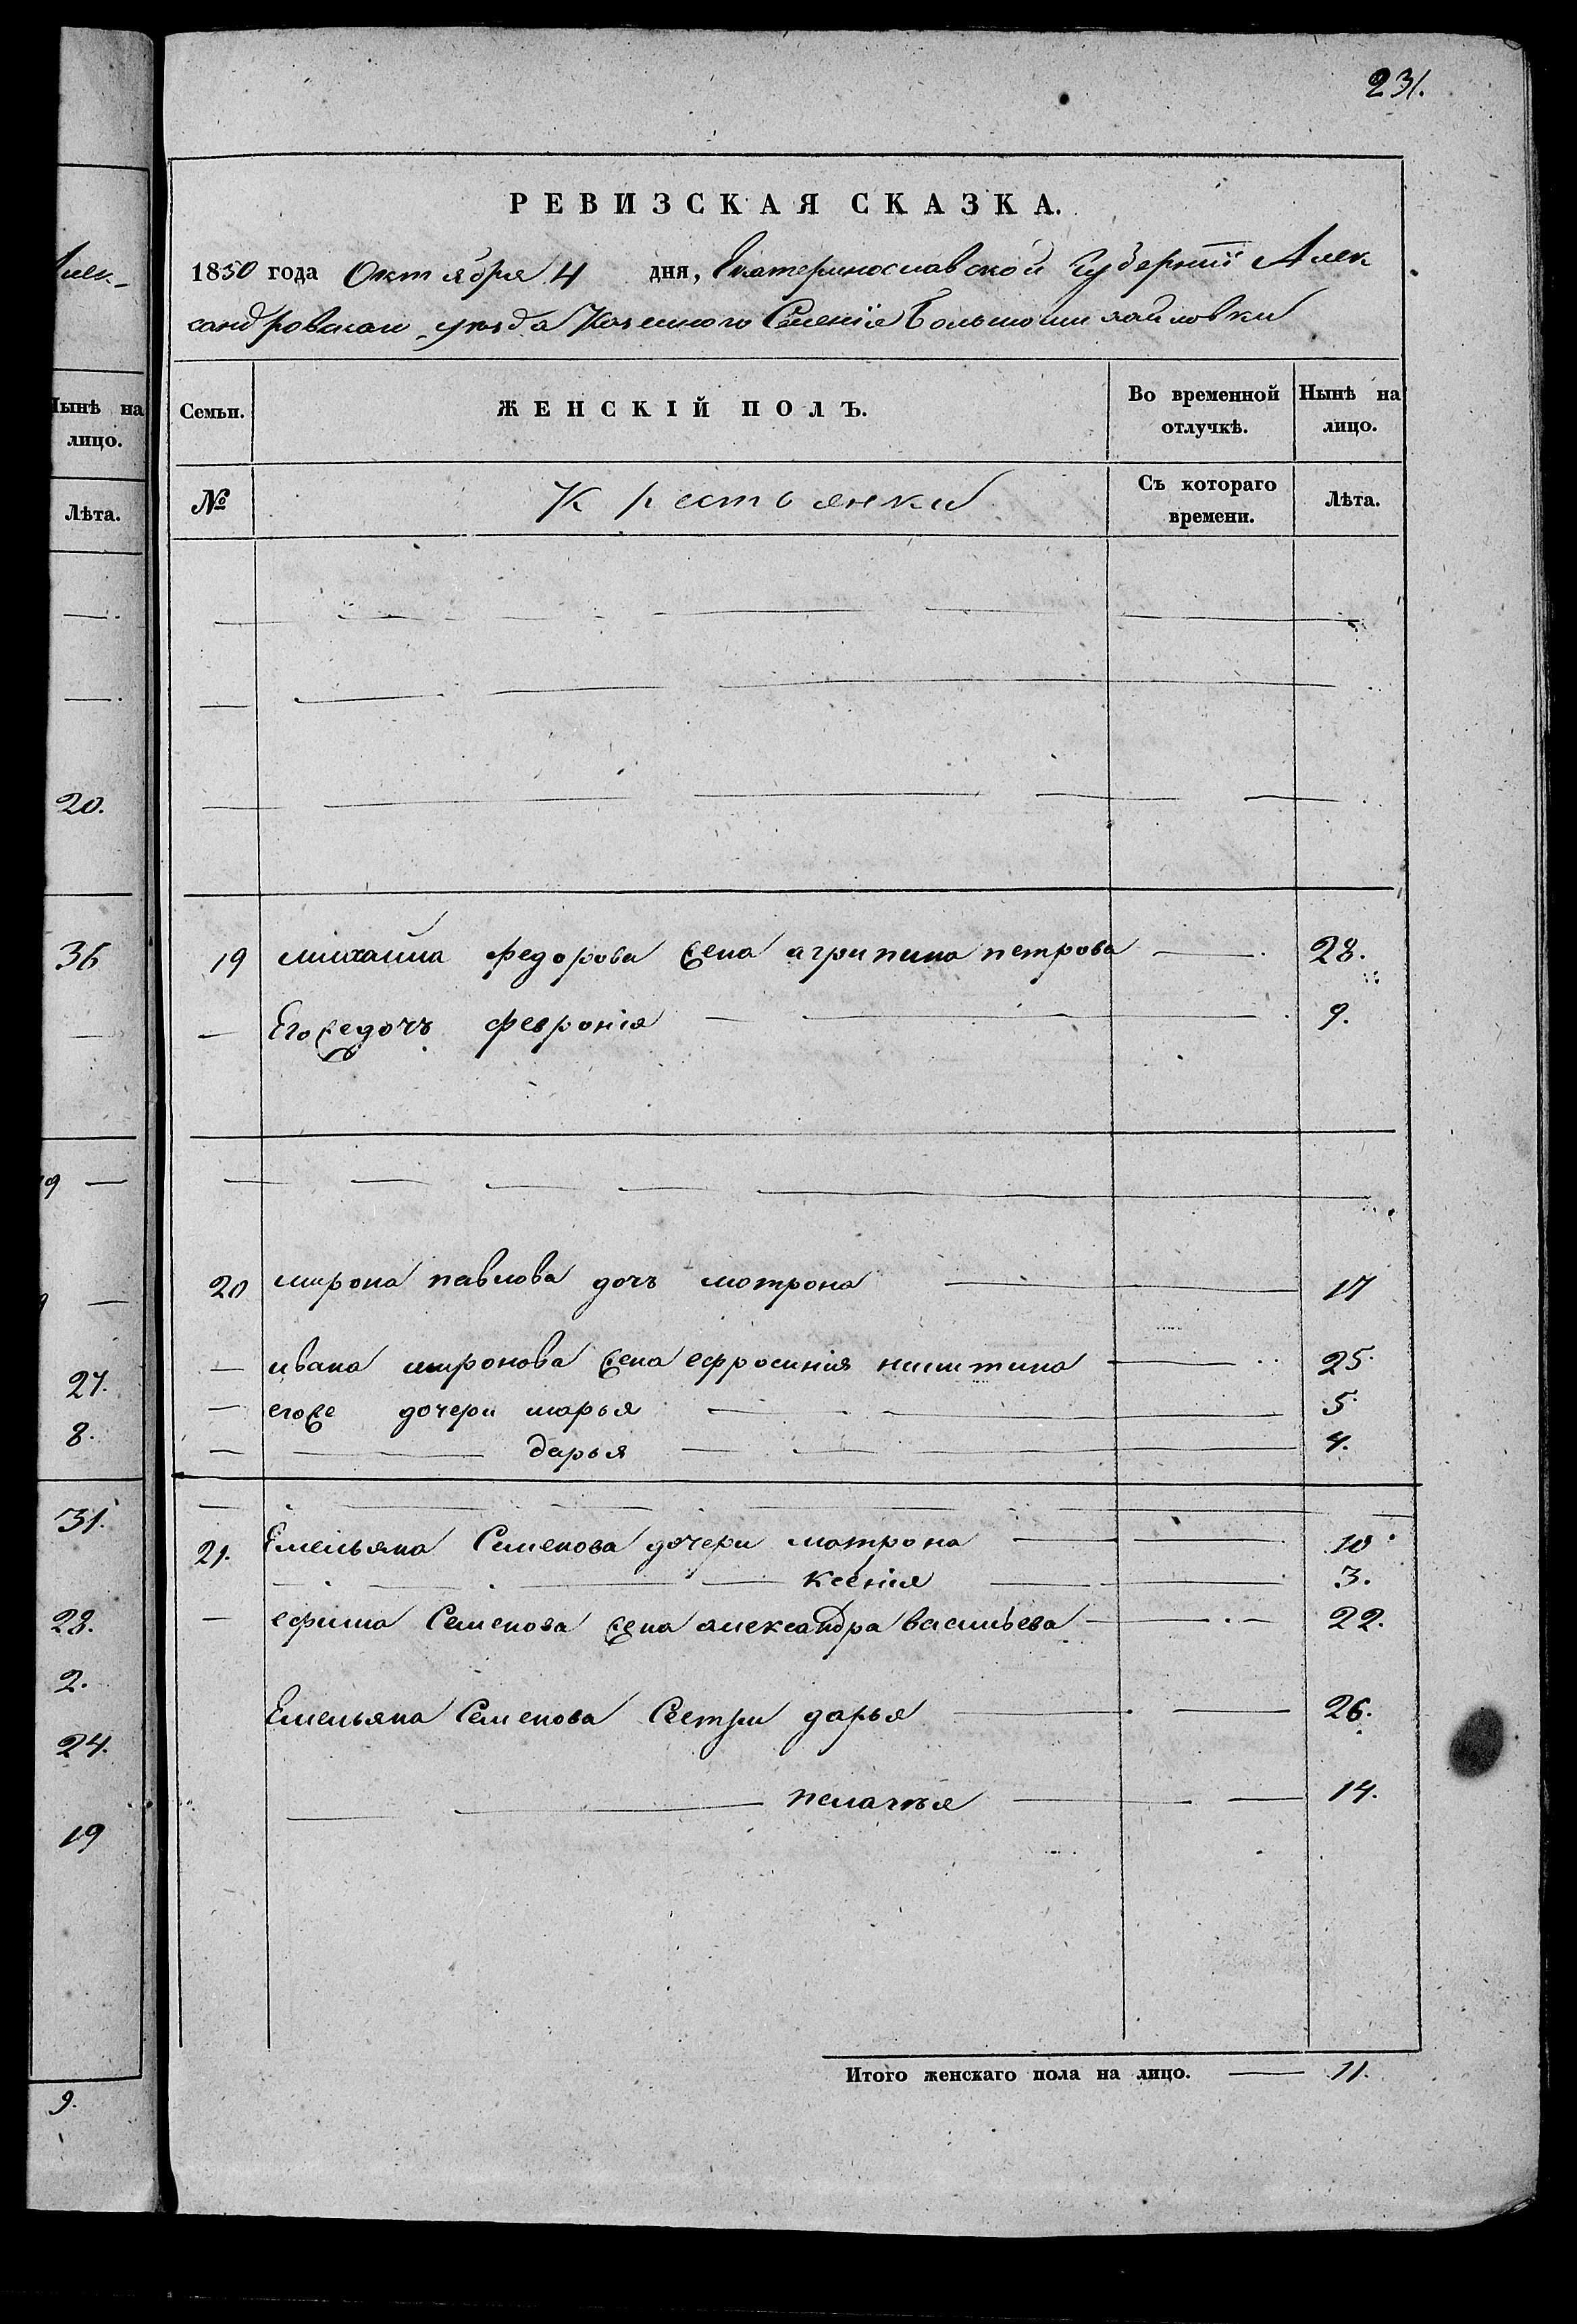 231.
РЕВИЗСКАЯ СКАЗКА.
1850 года Октября 4 дня, Екатеринославской Губернiи Алек
сандровскаи уезда Казенного Селенiе Большомихайловки
Семьи. ЖЕНСКІЙ ПОЛЪ. Во временной отлучкѣ. Нынѣ на лицо.
№ Крестьянки Съ котораго времени. Лѣта.
19 михаила федорова жена агрипина петрова 28.
Егожедочъ феврониа 9.
20 мирона павлова дочъ мотрона 17
ивана миронова жена ефросиния никитина 25.
егоже дочери марья 5.
дарья 4.
21. Емельяна Семенова дочери матрона 10
ксения 3.
ефима Семенова жена александра васильева 22.
Емельяна Семенова Сестри дарья 26.
пелагея 14.
Итого женскаго пола на лицо. 11.
Алек-
Нынѣ на
лицо.
Лѣта.
20.
36
19
27.
8.
31.
28.
2.
24.
19
9.